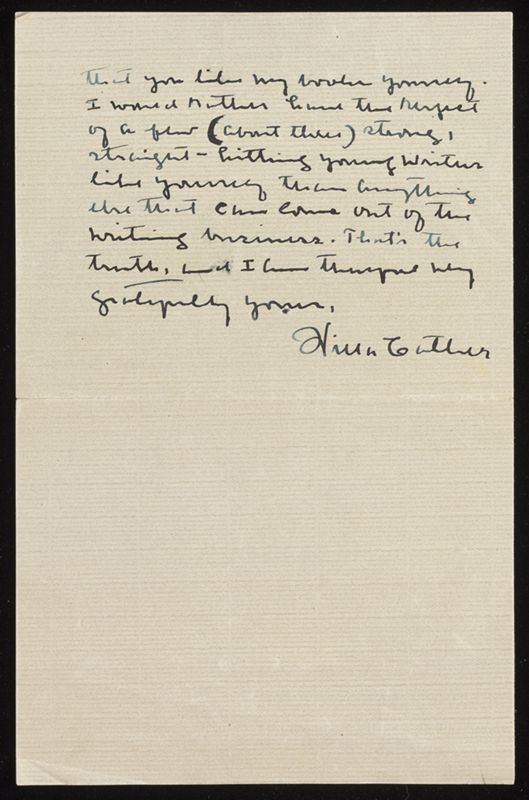 that you like my books yourself.
I would rather have the respect
of a few (about three) strong,
straight-hitting young writers
like yourself than anything
else that can come out of the
writing business. That's the
truth, and I am therefore very
gratefully yours,
Willa Cather